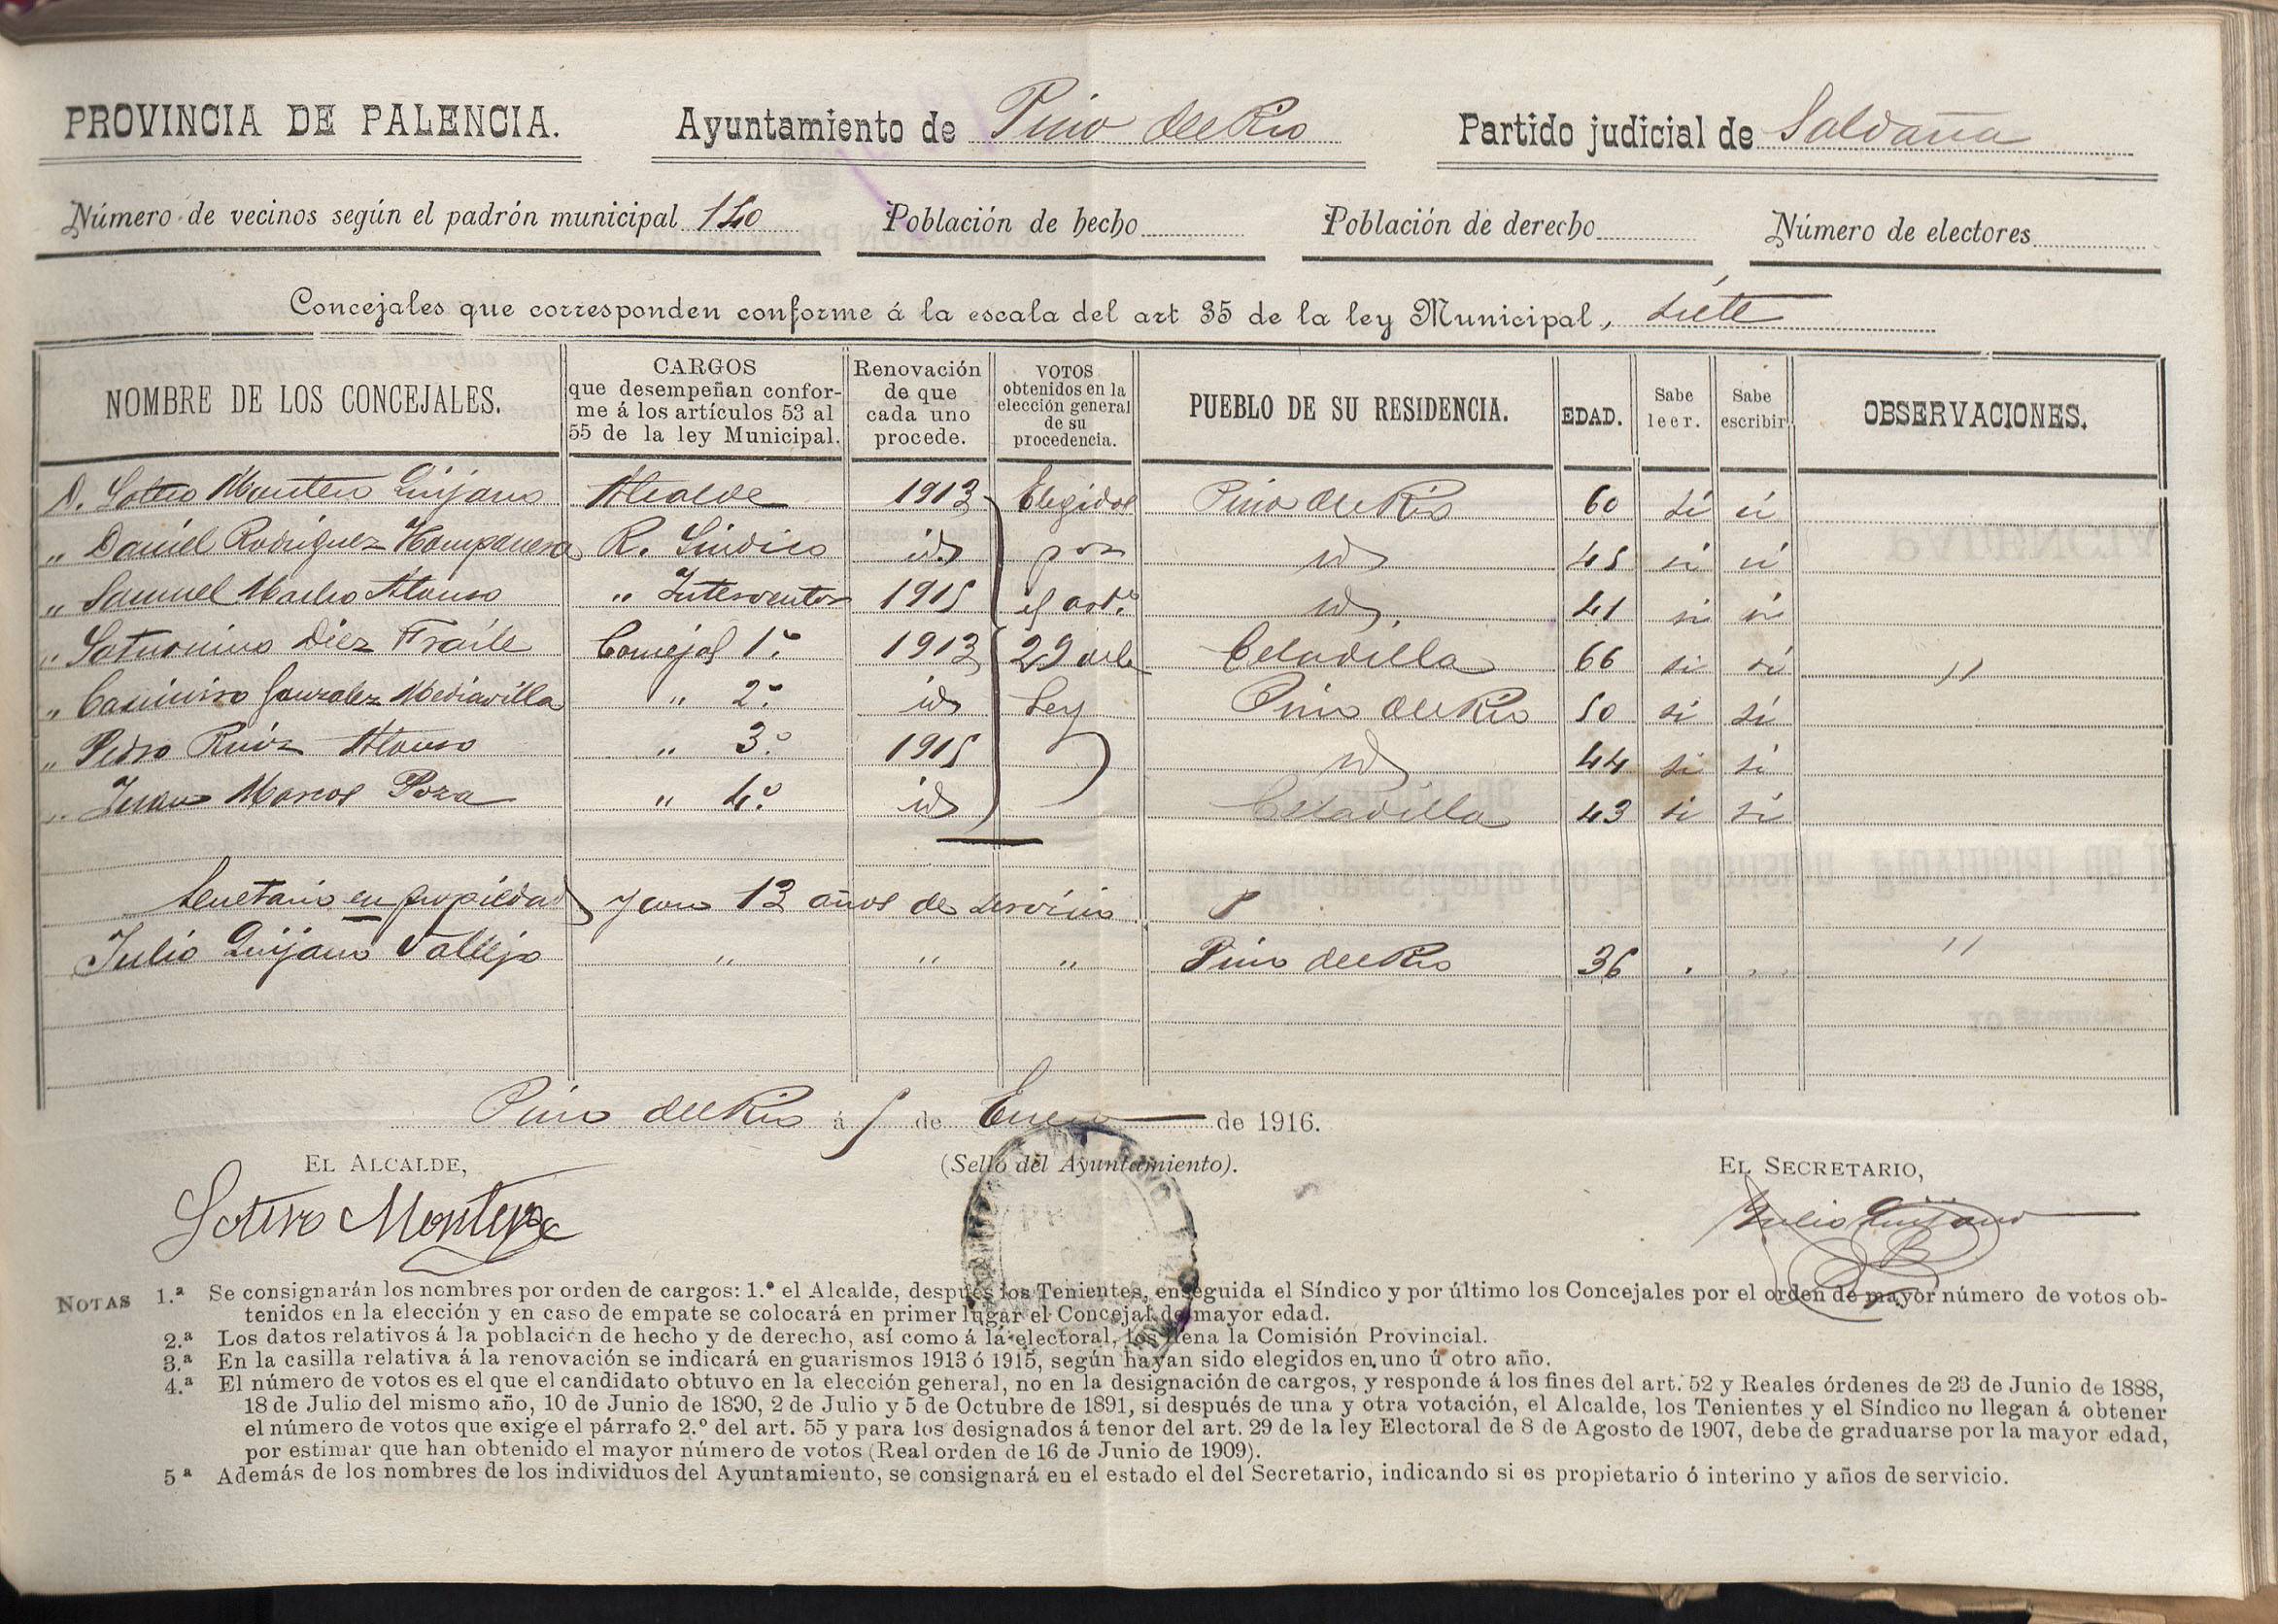 PROVINCIA DE PALENCIA. Ayuntamiento de Pino del Rio Partido judicial de Saldaña
Número de vecinos según el padrón municipal 140 Población de hecho Población de derecho Número de electores
Concejales que corresponden conforme á la escala del art 35 de la ley Municipal, siete
NOMBRE DE LOS CONCEJALES. CARGOS que desempeñan conforme á los artículos 53 al 55 de la ley Municipal. Renovación de que cada uno procede. VOTOS obtenidos en la elección general de su procedencia. PUEBLO DE SU RESIDENCIA. EDAD. Sabe leer. Sabe escribir OBSERVACIONES.
D. Sotero Montero Quijano Alcalde 1913 Elegidos Pino del Rio 60 si si
„ Daniel Rodriguez R. Sindico id por id 45 si si
„ Samuel Macho Alonso „ Interventor 1915 el art.º id. 41 si si
„ Saturnino Diez Fraile Concejal 1.º 1913 29 de la Celadilla 66 si si "
„ Casimiro Gonzalez Mediavilla „ 2.º id Ley Pino del Rio 50 si si
„ Pedro Ruiz Alonso „ 3.º 1915 id 44 si si
„ Juan Marcos Poza „ 4.º id Celadilla 43 si si
Secretario en propiedad y con 13 años de servicio
Julio Quijano Vallejo „ „ „ Pino del Rio 36 "
Pino del Rio á 5 de Enero de 1916.
EL ALCALDE, (Sello del Ayuntamiento). EL SECRETARIO,
Sotero Montero Julio Quijano
NOTAS 1.ª Se consignarán los nombres por orden de cargos: 1.º el Alcalde, después los Tenientes, enseguida el Síndico y por último los Concejales por el orden de mayor número de votos ob-
tenidos en la elección y en caso de empate se colocará en primer lugar el Concejal de mayor edad.
2.ª Los datos relativos á la población de hecho y de derecho, así como á la electoral, los llena la Comisión Provincial.
3.ª En la casilla relativa á la renovación se indicará en guarismos 1913 ó 1915, según hayan sido elegidos en uno ú otro año.
4.ª El número de votos es el que el candidato obtuvo en la elección general, no en la designación de cargos, y responde á los fines del art. 52 y Reales órdenes de 23 de Junio de 1888,
18 de Julio del mismo año, 10 de Junio de 1890, 2 de Julio y 5 de Octubre de 1891, si después de una y otra votación, el Alcalde, los Tenientes y el Síndico no llegan á obtener
el número de votos que exige el párrafo 2.º del art. 55 y para los designados á tenor del art. 29 de la ley Electoral de 8 de Agosto de 1907, debe de graduarse por la mayor edad,
por estimar que han obtenido el mayor número de votos (Real orden de 16 de Junio de 1909).
5ª Además de los nombres de los individuos del Ayuntamiento, se consignará en el estado el del Secretario, indicando si es propietario ó interino y años de servicio.